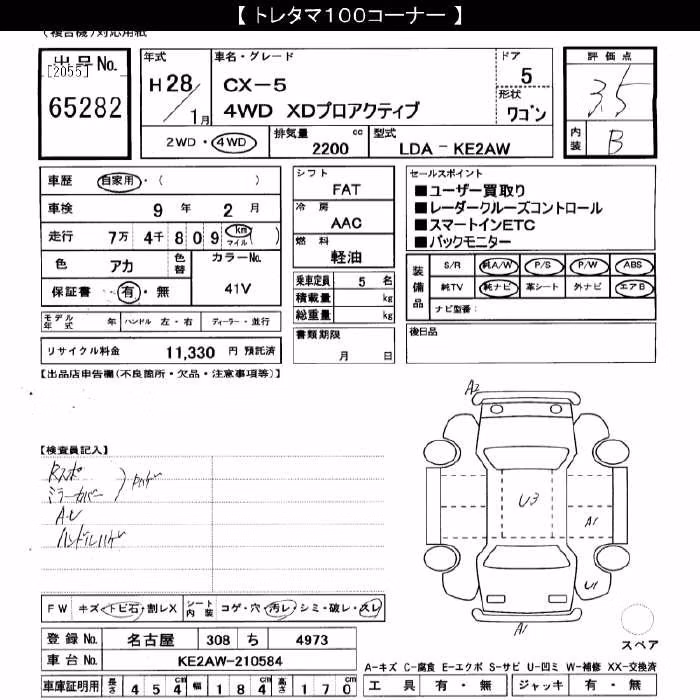 【 トレタマ100コーナー 】
(複合機)対応用紙
出品No. [2055] 65282
年式 H28/1月
車名・グレード CX-5 4WD XDプロアクティブ
ドア 5
形状 ワゴン
評価点 3.5
内装 B
2WD・4WD
排気量 2200 cc
型式 LDA-KE2AW
車歴 自家用・( )
車検 9年 2月
走行 7万 4千 809 km マイル ( )
色 アカ 色替 カラーNo. 41V
保証書 有・無
モデル年式 年 ハンドル 左・右 ディーラー・並行
リサイクル料金 11,330 円 預託済
シフト FAT
冷房 AAC
燃料 軽油
乗車定員 5 名
積載量 kg
総重量 kg
書類期限 月 日
セールスポイント
■ユーザー買取り
■レーダークルーズコントロール
■スマートインETC
■バックモニター
装備品 S/R 純A/W P/S P/W ABS
純TV 純ナビ 革シート 外ナビ エアB
ナビ型番:
後日品
【出品店申告欄(不良箇所・欠品・注意事項等)】
【検査員記入】
Rスポ
ミラーカバー
ハンドルハゲ
A2
U3
A1
U1
A1
スペア
FW キズ・トビ石・割レX シート内装 コゲ・穴・汚レ・シミ・破レ・スレ
登録No. 名古屋 308 ち 4973
車台No. KE2AW-210584
車庫証明用 長さ 454cm 幅 184cm 高さ 170cm
A-キズ C-腐食 E-エクボ S-サビ U-凹ミ W-補修 XX-交換済
工具 有・無 ジャッキ 有・無